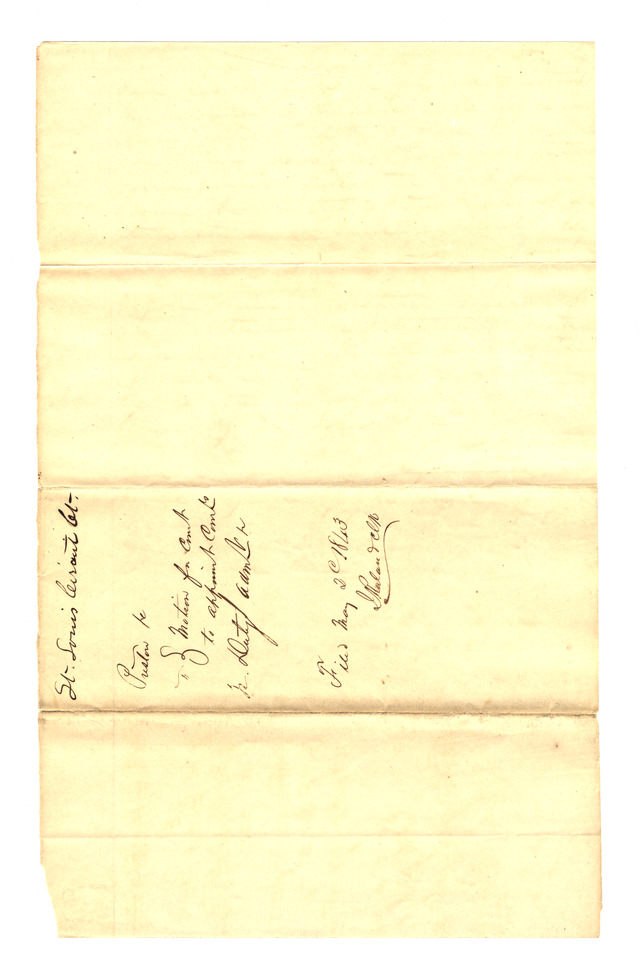 St. Louis Circuit Ct.
Preston &c
vs } Motion for Court
to appoint Comrs
M. Duty's admr &c
Filed May 2d 1843
J Ruland Clk